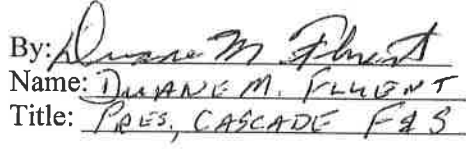 By: Duane M. Fluent
Name: DUANE M. FLUENT
Title: PRES., CASCADE F&S